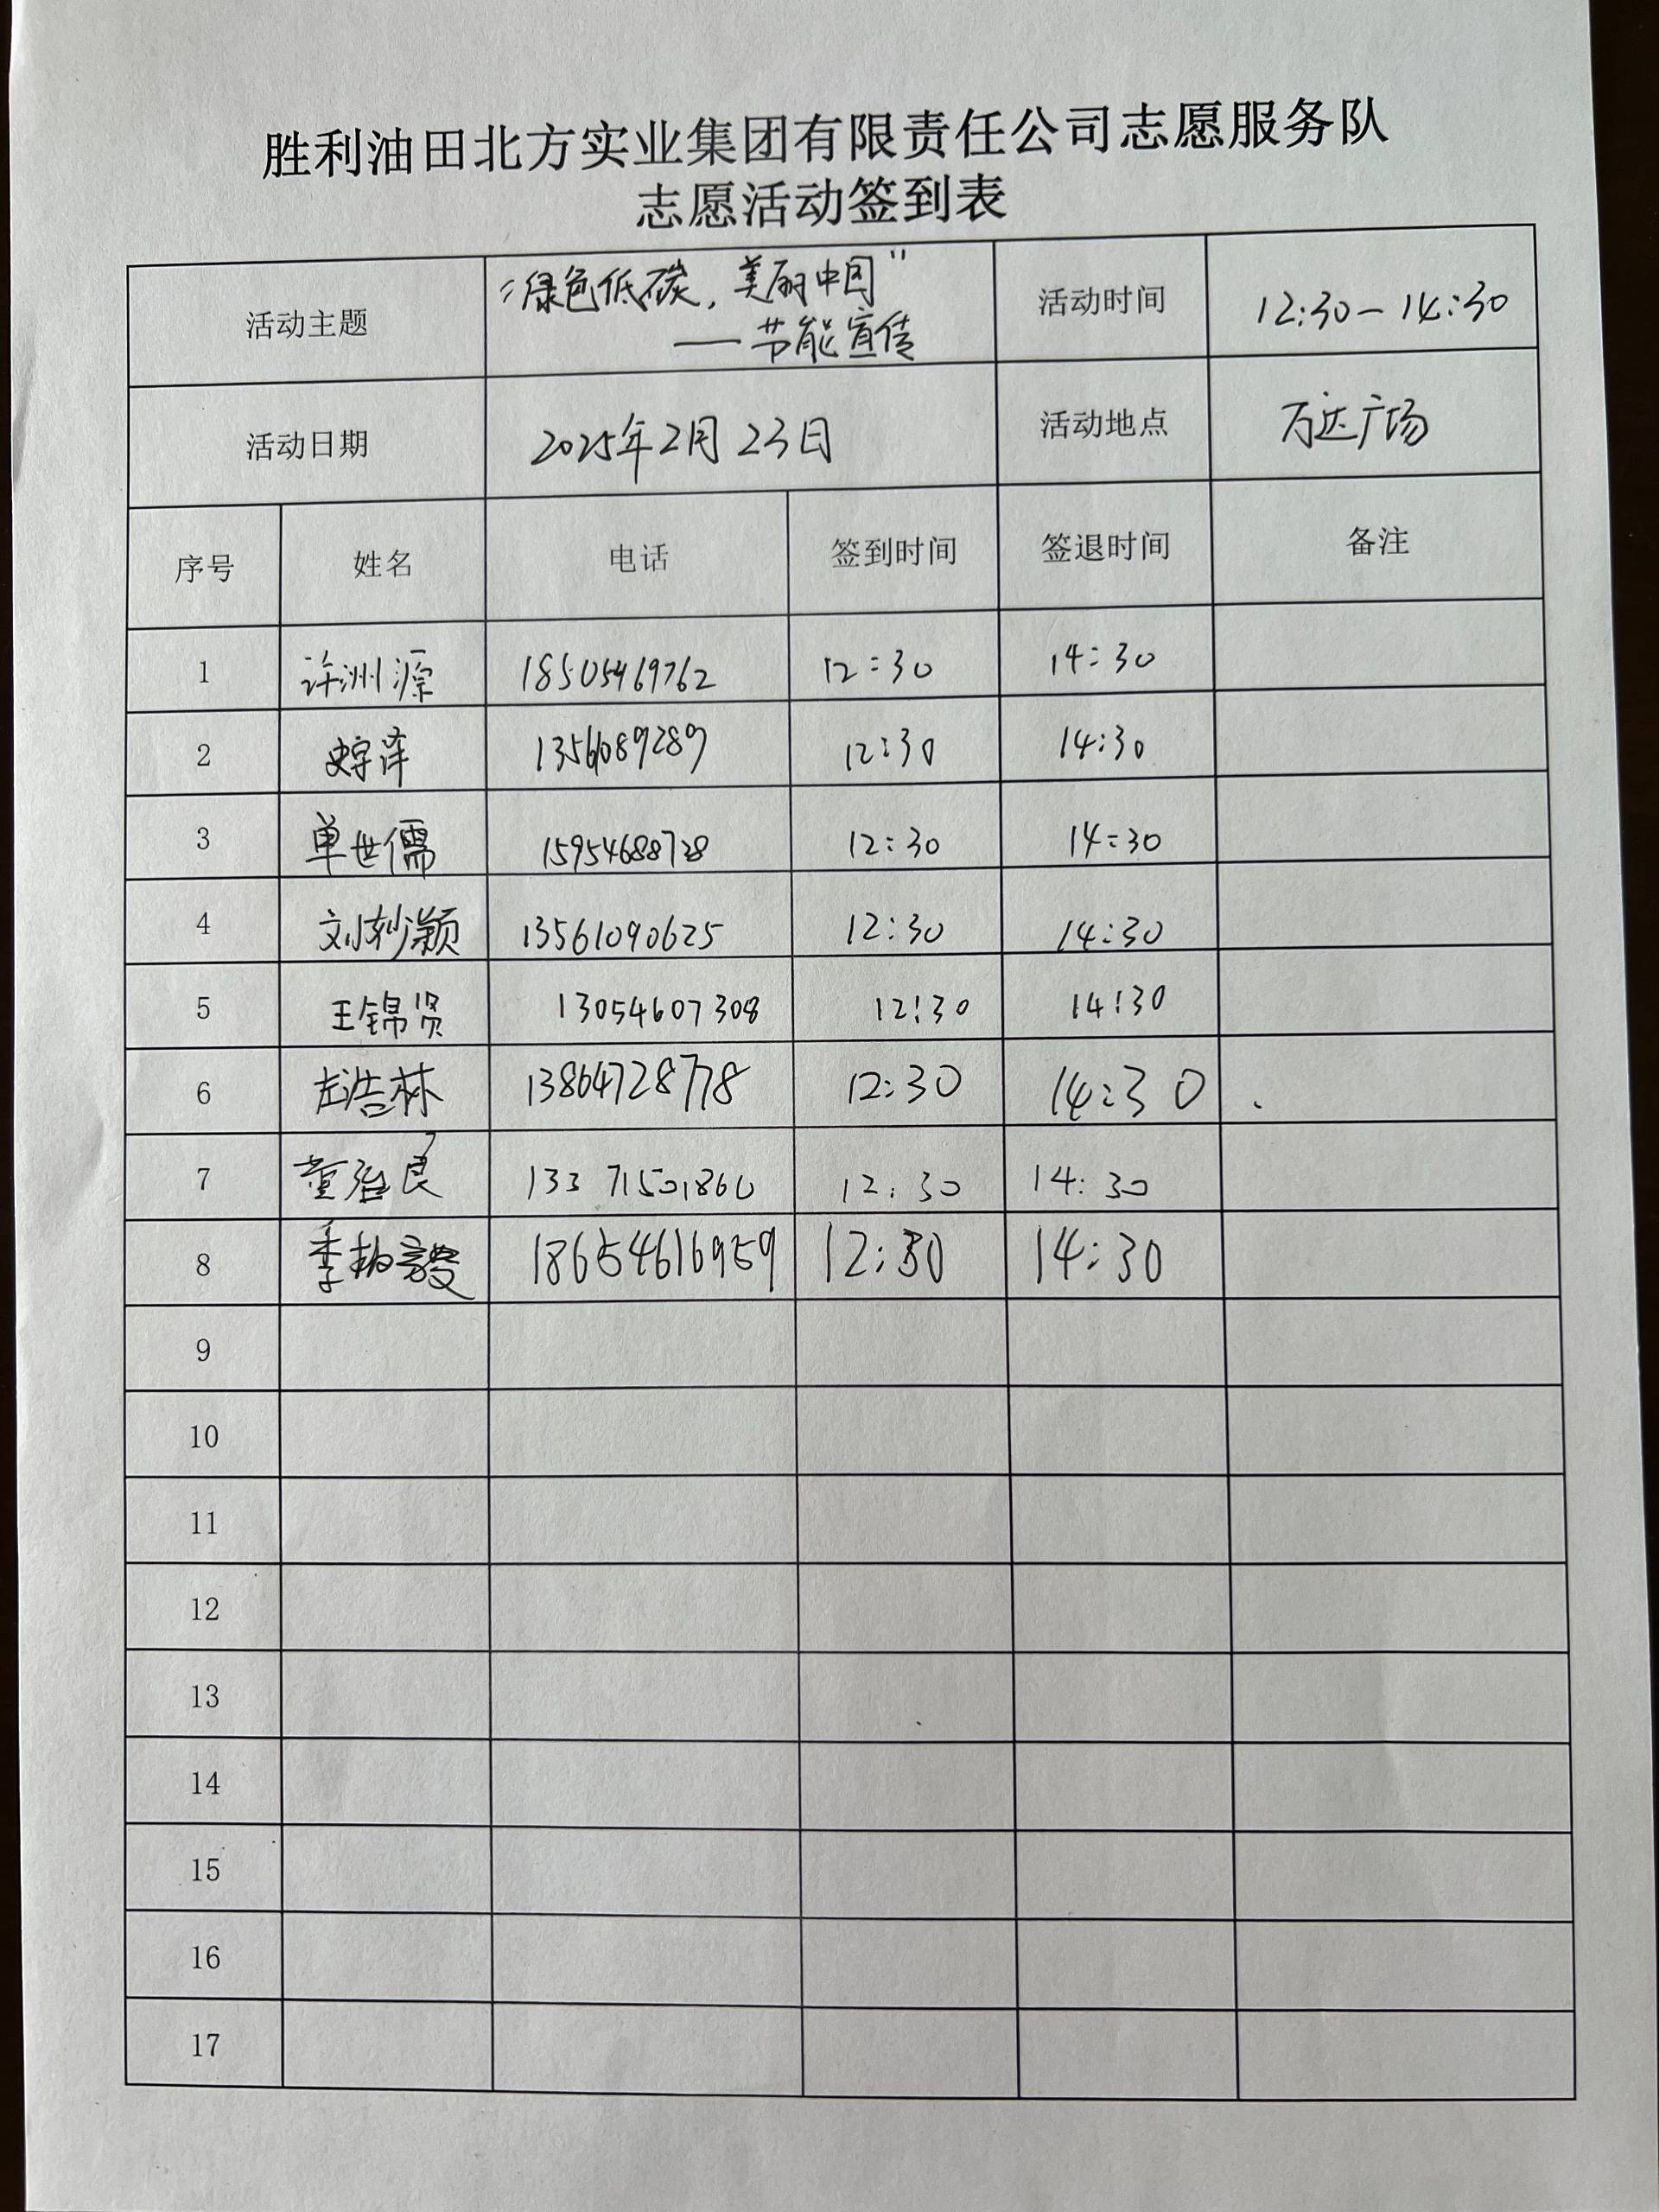 胜利油田北方实业集团有限责任公司志愿服务队
志愿活动签到表
活动主题 "绿色低碳，美丽中国" 活动时间 12:30—14:30
——节能宣传
活动日期 2025年2月23日 活动地点 万达广场
序号 姓名 电话 签到时间 签退时间 备注
1 许洲源 18505469762 12:30 14:30
2 12:30 14:30
3 单世儒 15954688728 12:30 14:30
4 刘 颖 13561090625 12:30 14:30
5 王锦贤 13054607308 12:30 14:30
6 左浩林 13864728778 12:30 14:30
7 董治良 13371501860 12:30 14:30
8 李柏毅 18654616959 12:30 14:30
9
10
11
12
13
14
15
16
17